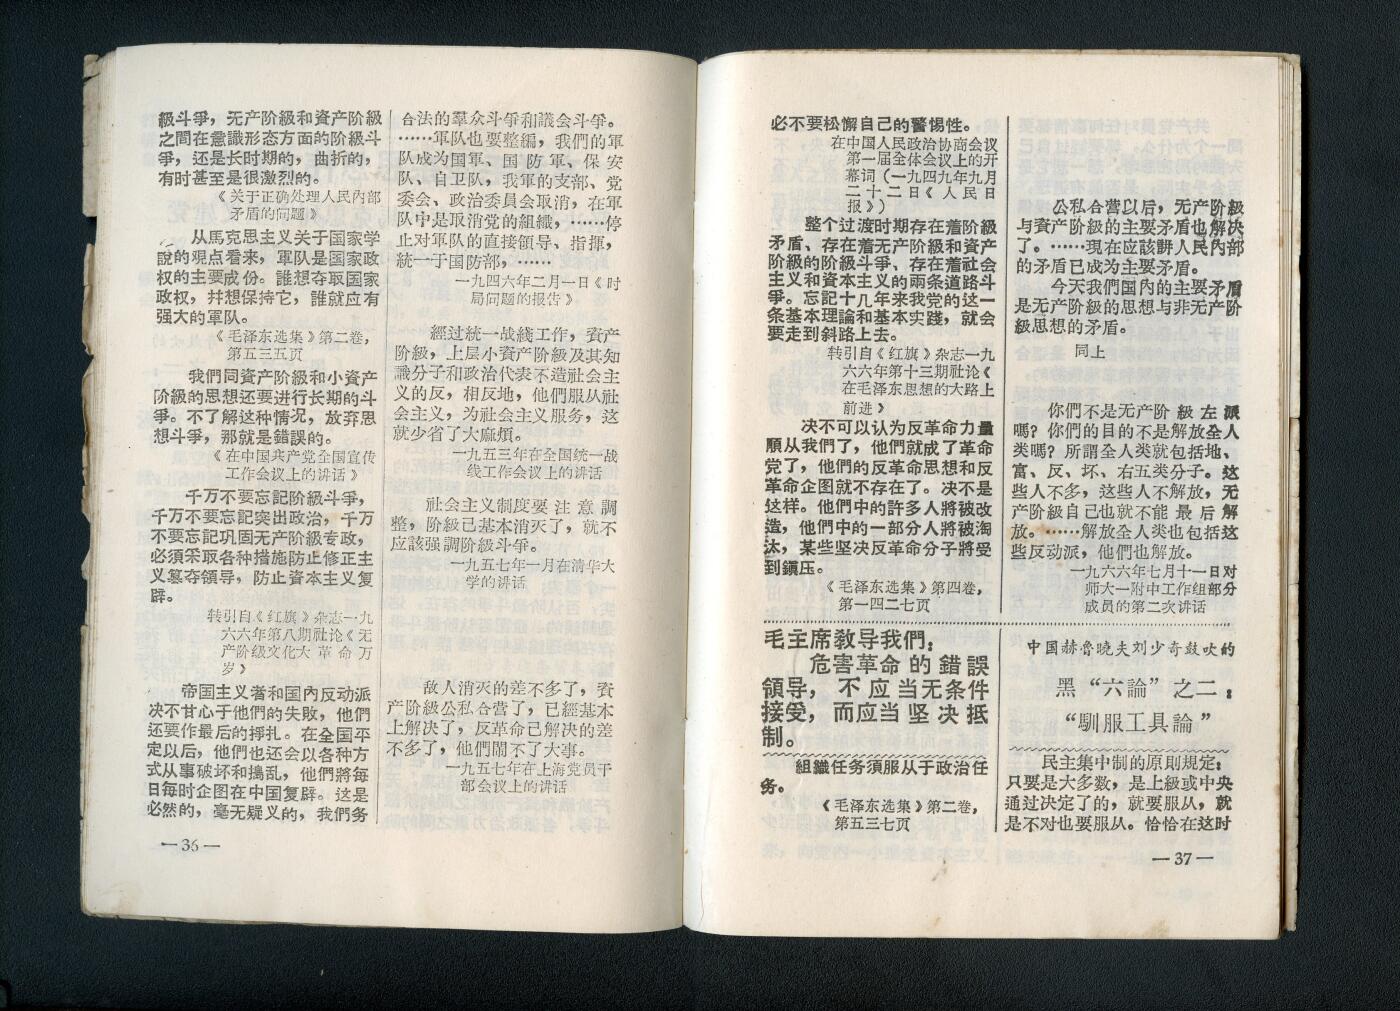 級斗爭，无产阶級和資产阶級
之間在意識形态方面的阶級斗
爭，还是长时期的，曲折的，
有时甚至是很激烈的。
《关于正确处理人民內部
矛盾的問題》
从馬克思主义关于国家学
說的观点看来，軍队是国家政
权的主要成份。誰想夺取国家
政权，幷想保持它，誰就应有
强大的軍队。
《毛泽东选集》第二卷，
第五三五页
我們同資产阶級和小資产
阶級的思想还要进行长期的斗
爭。不了解这种情况，放弃思
想斗爭，那就是錯誤的。
《在中国共产党全国宣传
工作会议上的讲话》
千万不要忘記阶級斗爭，
千万不要忘記突出政治，千万
不要忘記巩固无产阶級专政，
必須采取各种措施防止修正主
义篡夺領导，防止資本主义复
辟。
转引自《红旗》杂志一九
六六年第八期社论《无
产阶级文化大革命万
岁》
帝国主义者和国內反动派
决不甘心于他們的失敗，他們
还要作最后的掙扎。在全国平
定以后，他們也还会以各种方
式从事破坏和搗乱，他們將每
日每时企图在中国复辟。这是
必然的，毫无疑义的，我們务
合法的羣众斗爭和議会斗爭。
……軍队也要整編，我們的軍
队成为国軍、国防軍、保安
队、自卫队，我軍的支部、党
委会、政治委員会取消，在軍
队中是取消党的組織，……停
止对軍队的直接領导、指揮，
統一于国防部，……
一九四六年二月一日《时
局问题的报告》
經过統一战綫工作，資产
阶級，上层小資产阶級及其知
識分子和政治代表不造社会主
义的反，相反地，他們服从社
会主义，为社会主义服务，这
就少省了大麻煩。
一九五三年在全国统一战
线工作会议上的讲话
社会主义制度要注意調
整，阶級已基本消灭了，就不
应該强調阶級斗爭。
一九五七年一月在清华大
学的讲话
敌人消灭的差不多了，資
产阶級公私合营了，已經基本
上解决了，反革命已解决的差
不多了，他們鬧不了大事。
一九五七年在上海党员干
部会议上的讲话
—36—
必不要松懈自己的警惕性。
在中国人民政治协商会议
第一届全体会议上的开
幕词（一九四九年九月
二十二日《人民日
报》）
整个过渡时期存在着阶級
矛盾、存在着无产阶級和資产
阶級的阶級斗爭、存在着社会
主义和資本主义的兩条道路斗
爭。忘記十几年来我党的这一
条基本理論和基本实践，就会
要走到斜路上去。
转引自《红旗》杂志一九
六六年第十三期社论《
在毛泽东思想的大路上
前进》
决不可以认为反革命力量
順从我們了，他們就成了革命
党了，他們的反革命思想和反
革命企图就不存在了。决不是
这样。他們中的許多人將被改
造，他們中的一部分人將被淘
汰，某些坚决反革命分子將受
到鎭压。
《毛泽东选集》第四卷，
第一四二七页
毛主席教导我們：
危害革命的錯誤
領导，不应当无条件
接受，而应当坚决抵
制。
組織任务須服从于政治任
务。
《毛泽东选集》第二卷，
第五三七页
公私合营以后，无产阶級
与資产阶級的主要矛盾也解决
了。……現在应該講人民內部
的矛盾已成为主要矛盾。
今天我們国內的主要矛盾
是无产阶級的思想与非无产阶
級思想的矛盾。
同上
你們不是无产阶級左派
嗎？你們的目的不是解放全人
类嗎？所謂全人类就包括地、
富、反、坏、右五类分子。这
些人不多，这些人不解放，无
产阶級自己也就不能最后解
放。……解放全人类也包括这
些反动派，他們也解放。
一九六六年七月十一日对
师大一附中工作组部分
成员的第二次讲话
中国赫魯曉夫刘少奇鼓吹的
黑“六論”之二：
“馴服工具論”
民主集中制的原則規定：
只要是大多数，是上級或中央
通过决定了的，就要服从，就
是不对也要服从。恰恰在这时
—37—